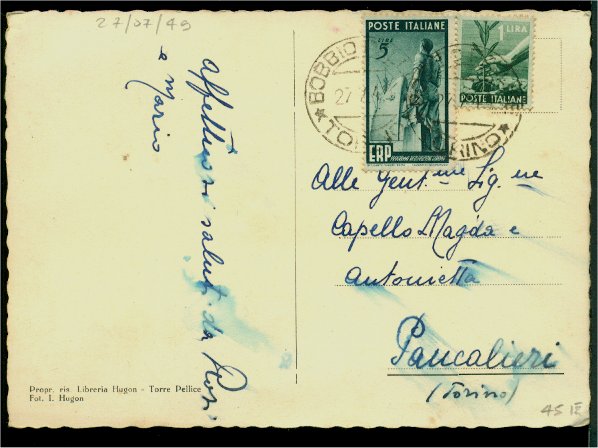 27/07/49
Affettuosi saluti da Rosi
e Mario
POSTE ITALIANE
LIRE
5
ERP
1 LIRA
POSTE ITALIANE
BOBBIO
TORINO
Alle Gent.me Sig.ne
Capello Magda e
Antonietta
Pancalieri
(Torino)
Propr. ris. Libreria Hugon - Torre Pellice
Fot. I. Hugon
45 IE